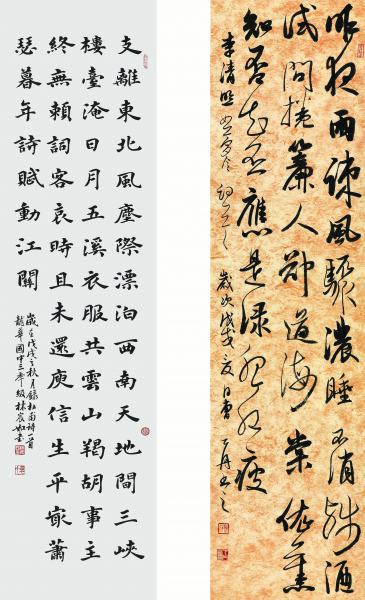 昨夜雨疎風驟濃睡不消殘酒
試問捲簾人卻道海棠依舊
知否知否應是綠肥紅瘦
李清照如夢令歲次戊戌夏日
支離東北風塵際漂泊西南天地間三峽
樓臺淹日月五溪衣服共雲山羯胡事主
終無賴詞客哀時且未還庾信生平㝡蕭
瑟暮年詩賦動江關
歲在戊戌之秋月錄杜甫詩一首
龍華國中三年級林宸如書